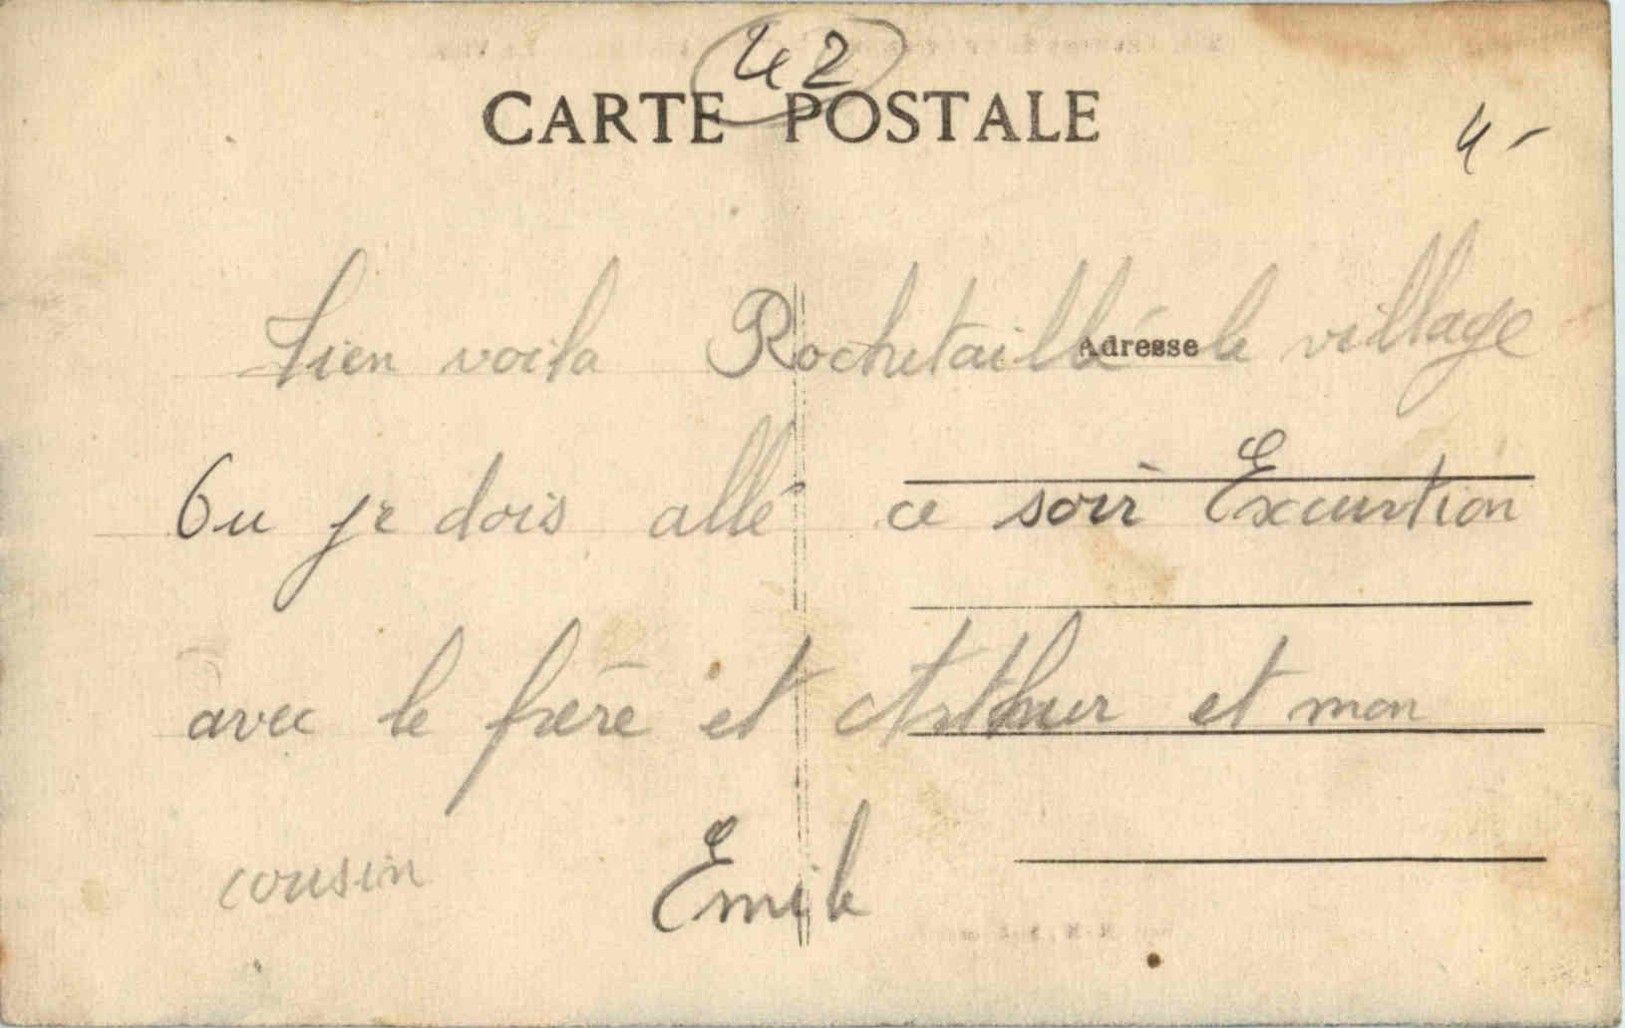 42
CARTE POSTALE
4-
Tien voila Rochetaillée le village
Adresse
Ou je dois allé ce soir Excurtion
avec le frère et Arthur et mon
cousin Emile